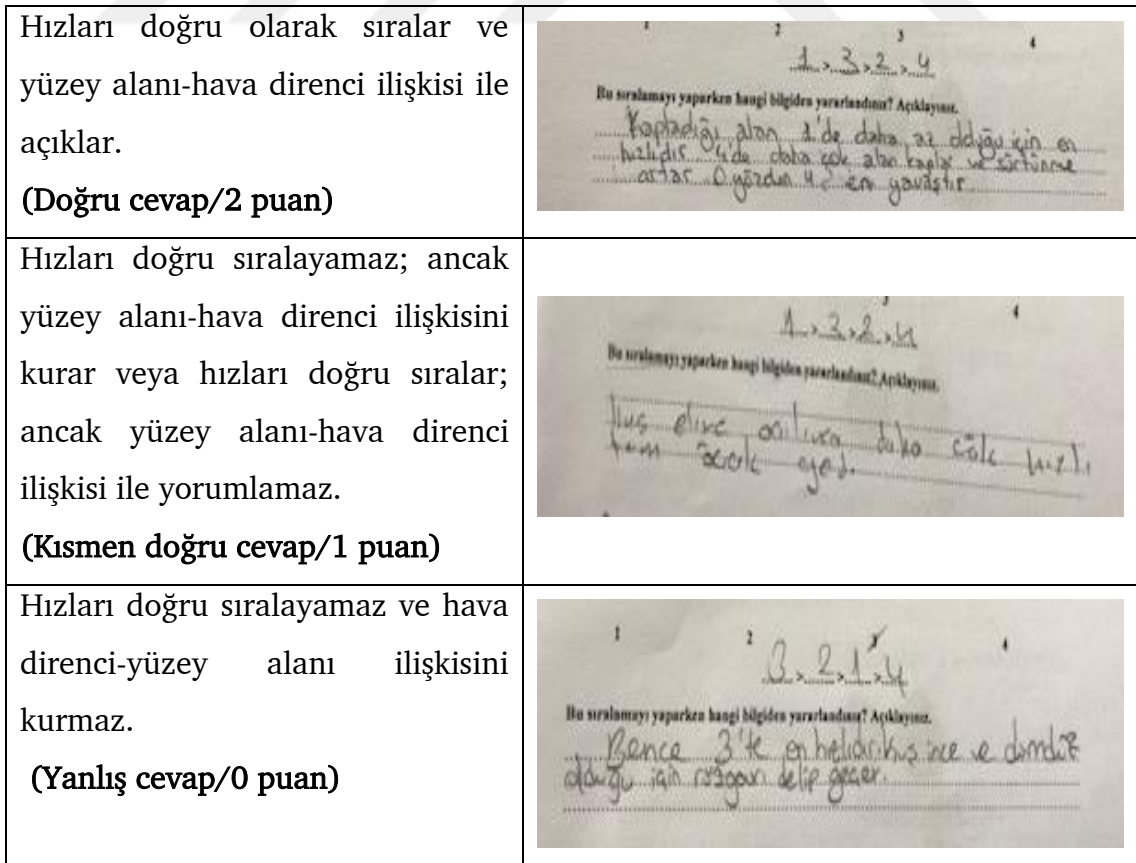 Hızları doğru olarak sıralar ve
yüzey alanı-hava direnci ilişkisi ile
açıklar.
(Doğru cevap/2 puan)
1 2 3 4
1 > 3 > 2 > 4
Bu sıralamayı yaparken hangi bilgiden yararlandınız? Açıklayınız.
Kapladığı alan 1'de daha az olduğu için en
hızlıdır 4'de daha çok alan kaplar ve sürtünme
artar. O yüzden 4 en yavaştır
Hızları doğru sıralayamaz; ancak
yüzey alanı-hava direnci ilişkisini
kurar veya hızları doğru sıralar;
ancak yüzey alanı-hava direnci
ilişkisi ile yorumlamaz.
(Kısmen doğru cevap/1 puan)
3 4
1 > 3 > 2 > 4
Bu sıralamayı yaparken hangi bilgiden yararlandınız? Açıklayınız.
daha çok hızlı
Hızları doğru sıralayamaz ve hava
direnci-yüzey alanı ilişkisini
kurmaz.
(Yanlış cevap/0 puan)
1 2 3 4
3 > 2 > 1 > 4
Bu sıralamayı yaparken hangi bilgiden yararlandınız? Açıklayınız.
Bence 3'te ince ve dümdüz
olduğu için delip geçer.